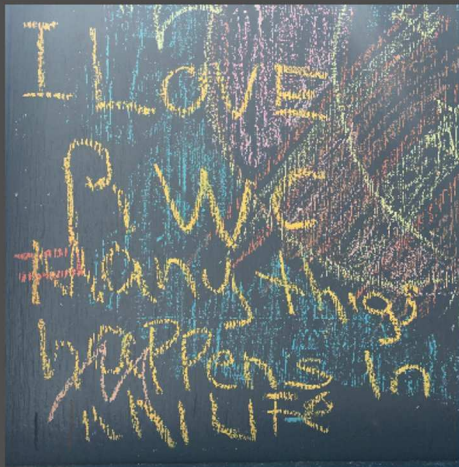 I LOVE
W C
thigs
happens In
LIFE